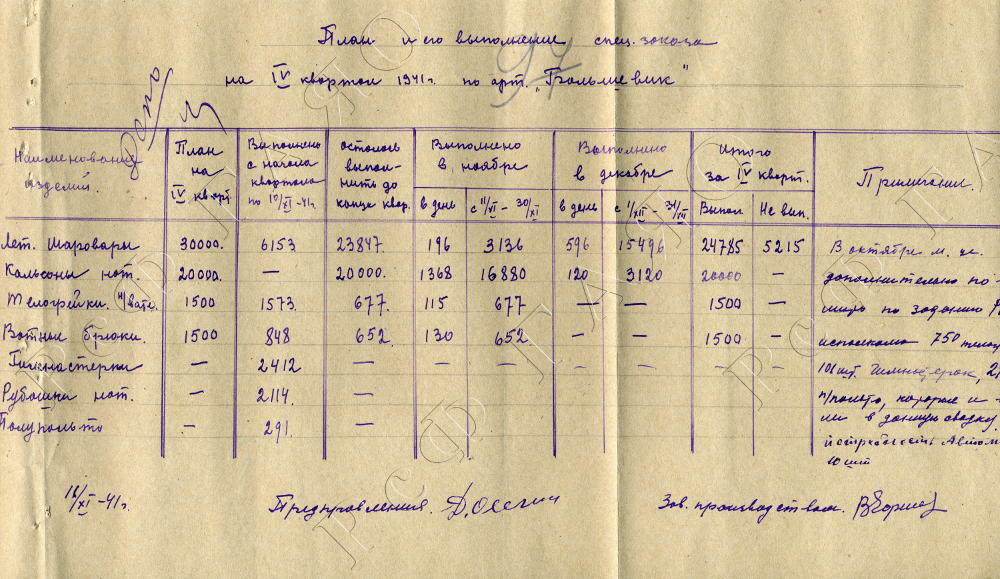 План и его выполнение спец. заказа
на IV квартал 1941 г. по арт. „Большевик“
97
Наименование изделий. | План на IV кварт. | Выполнено с начала квартала по 10/XI-41г. | осталось выполнить до конца квар. | Выполнено в ноябре | Выполнено в декабре | Итого за IV кварт. | Примечания.
в день | с 11/XI - 30/XI | в день | с 1/XII - 31/XII | Выпол | Не вып.
Лет. шаровары | 30000. | 6153 | 23847 | 196 | 3136 | 596 | 15496 | 24785 | 5215 | В октябре м. це.
Кальсоны нат. | 20000. | — | 20000. | 1368 | 16880 | 120 | 3120 | 20000 | — | дополнительно по-
Телогрейки н/вате. | 1500 | 1573. | 677. | 115 | 677 | — | — | 1500 | — | по заданию
Ватные брюки. | 1500 | 848 | 652. | 130 | 652 | — | — | 1500 | — | 750
Гимнастерки | — | 2412 | — | — | — | — | — | — | — | 101 шт. гимнастерок, 2
Рубашки нат. | — | 2114. | — | п/пальто, которые и
Полупальто | — | 291. | — | ли в данную сводку.
10 шт
11/XI-41г. Предправления. Зав. производством.